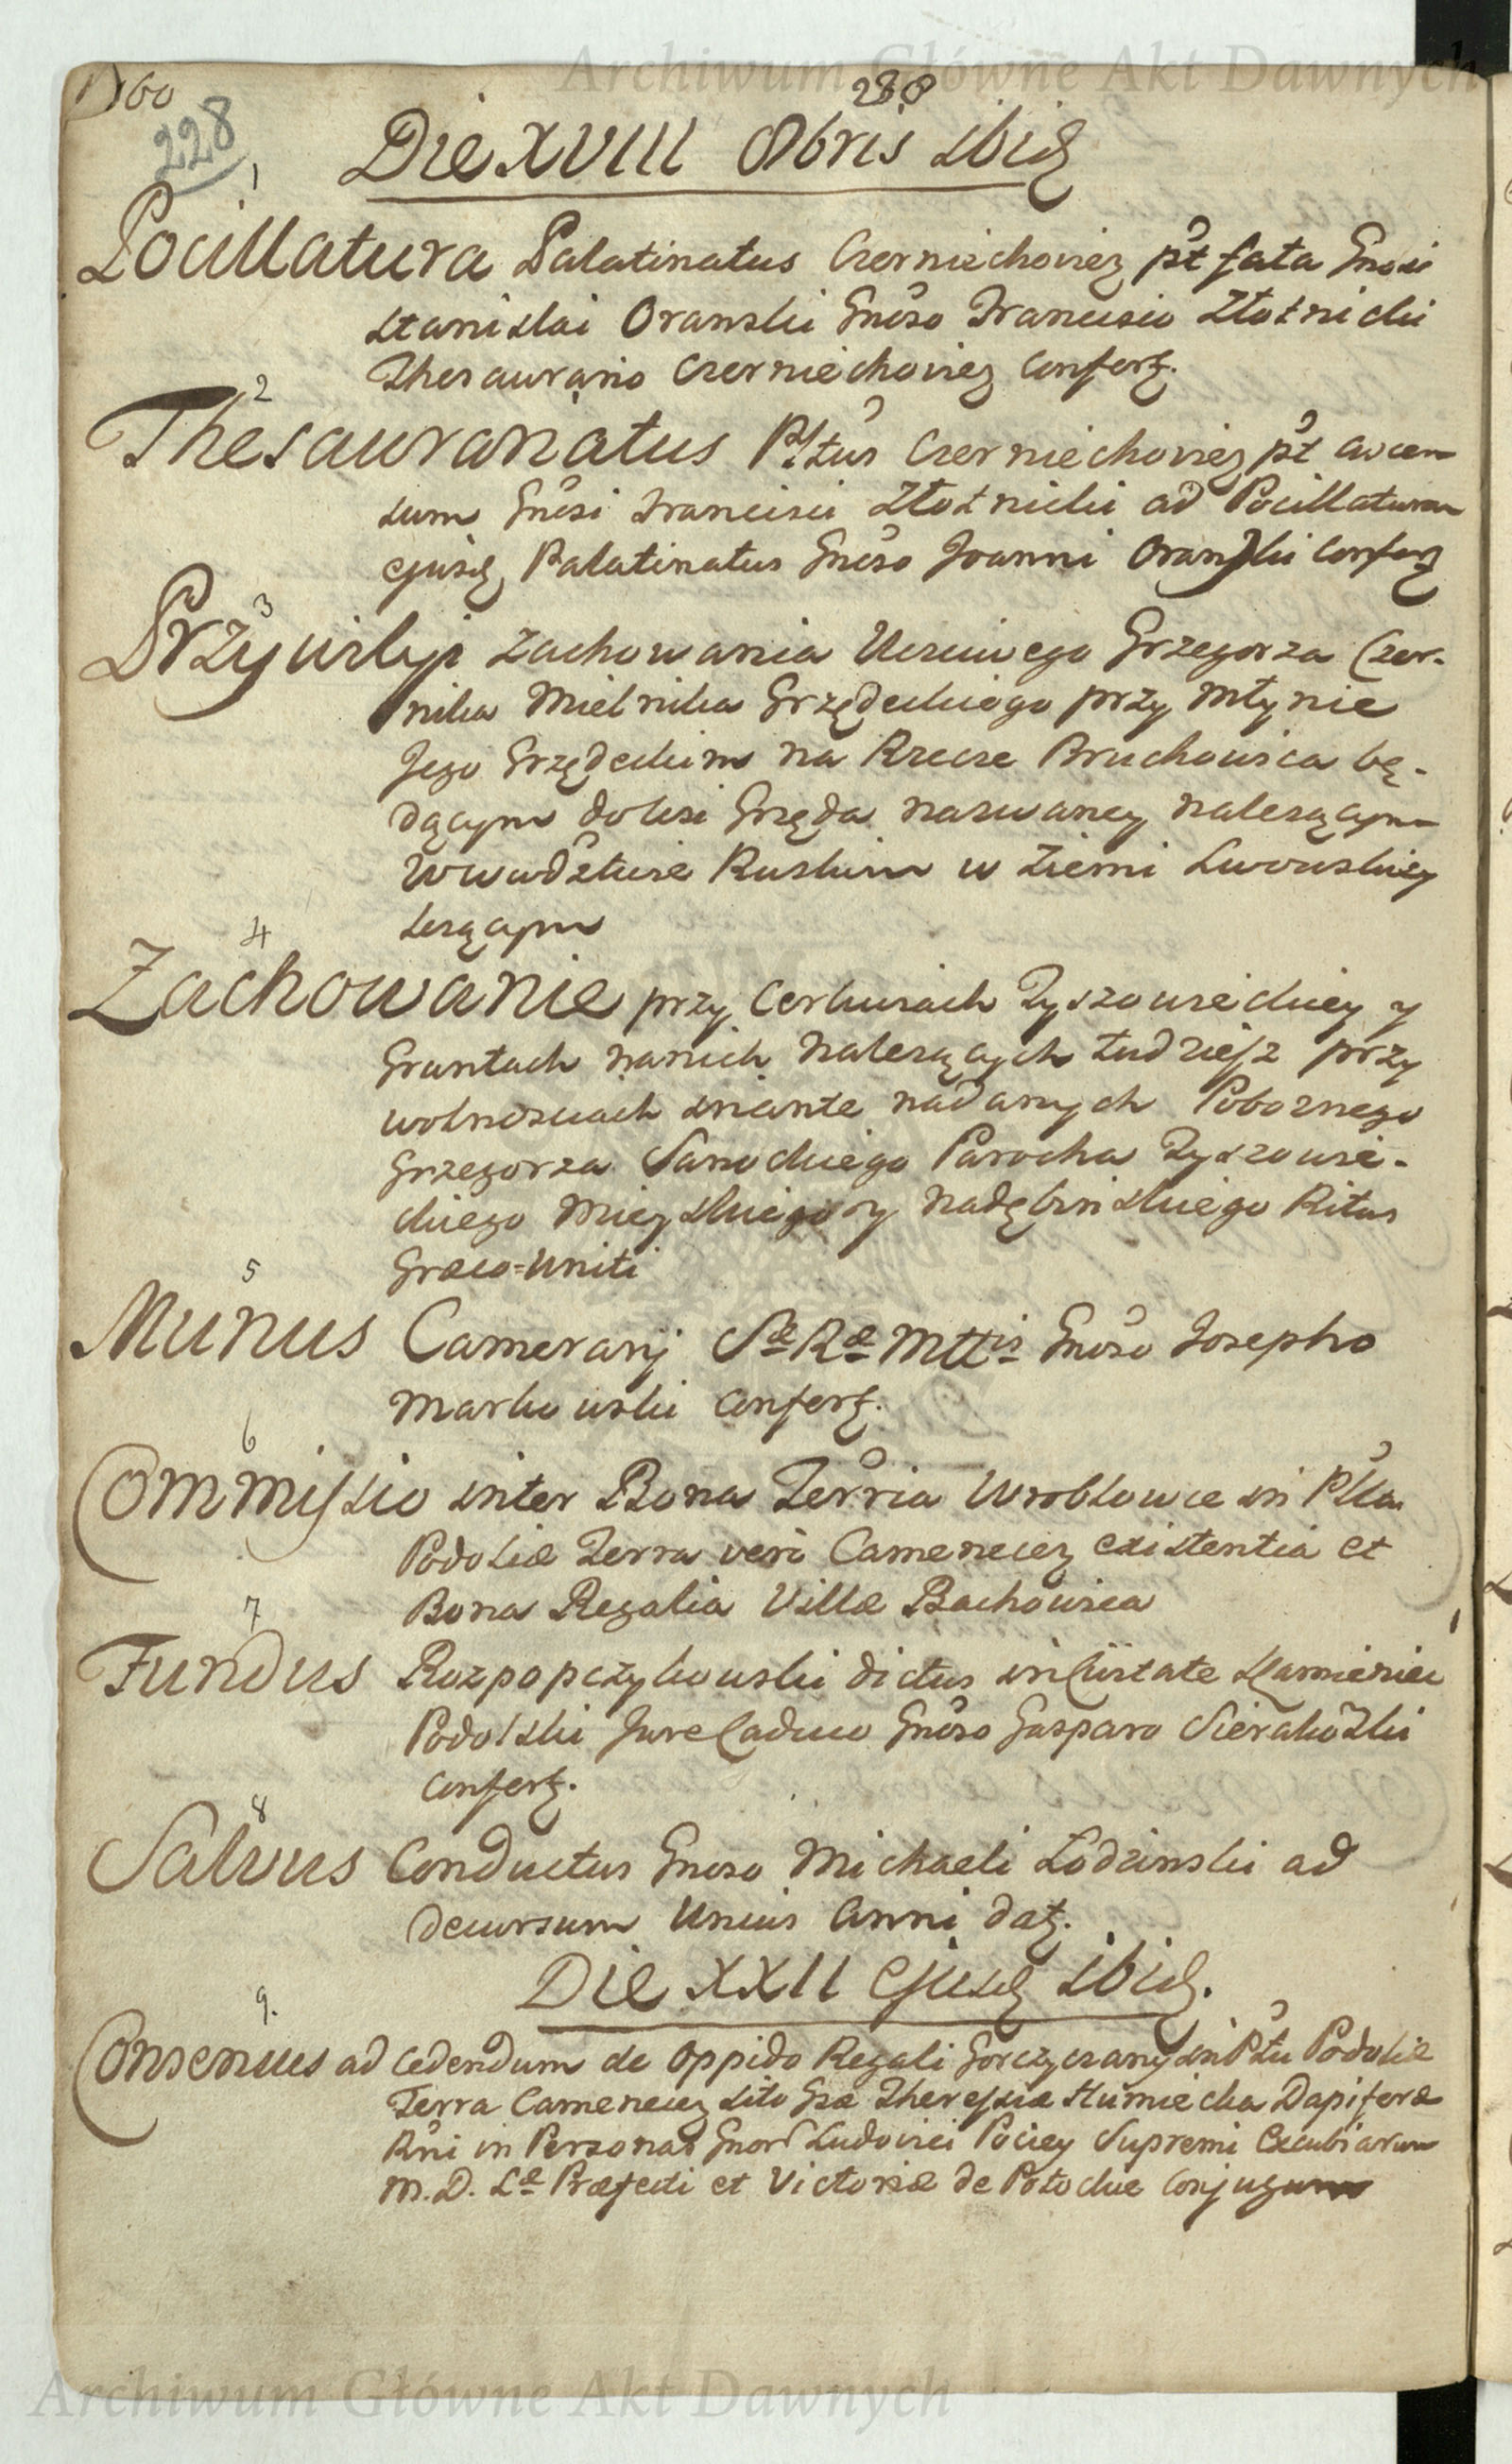 Archiwum Główne Akt Dawnych
1760
288
228
Die XVIII 8bris ibid
1
Pocillatura Palatinatus Czerniechovien pt fata Gnosi
Stanislai Oranski Gnoso Francisco Złotnicki
Thesaurario Czerniechovien Confert.
2
Thesauranatus Pltus Czerniechovien pt ascen
sum Gnosi Francisci Złotnicki ad Pocillaturam
ejusd Palatinatus Gnoso Joanni Oranski Confert
3
Przywiley zachowania Uczciwego Grzegorza Czer-
nika Mielnika Grzędeckiego przy Młynie
Jego Grzędeckim na Rzecze Bruchowica bę-
dącym do Wsi Grzęda nazwaney należącym
w Wwdztwie Ruskim w Ziemi Lwowskiey
leżącym
4
Zachowanie przy Cerkwiach Tyszowieckiey y
Gruntach na nich należących tudziesz przy
wolnosciach in ante nadanych Pobożnego
Grzegorza Sanockiego Parocha Tyszowie-
ckiego Mieyskiego y Nadębinskiego Ritus
Græco=Uniti
5
Munus Camerarij Sæ Ræ Mttis Gnoso Josepho
Markowski Confert.
6
Commissio inter Bona Terria Wroblowce in Plta
Podoliæ Terra vero Camenecen existentia et
Bona Regalia Villæ Bachowica
7
Fundus Rozpopczykowski dictus in Civitate Kamieniec
Podolski Jure Caduco Gnoso Gasparo Sierakowski
Confert.
8
Salvus Conductus Gnoso Michaeli Łodzinski ad
decursum Unius Anni dat.
Die XXII Ejusd ibid.
9.
Consensus ad cedendum de Oppido Regali Gorczyczany in Pltu Podoliæ
Terra Camenecen sito Gsæ Theressiæ Humiecka Dapiferæ
Rni in Personas Gnor Ludovici Pociey Supremi Excubiarum
M. D. Læ Præfecti et Victoriæ de Potockie Conjugum
Archiwum Główne Akt Dawnych